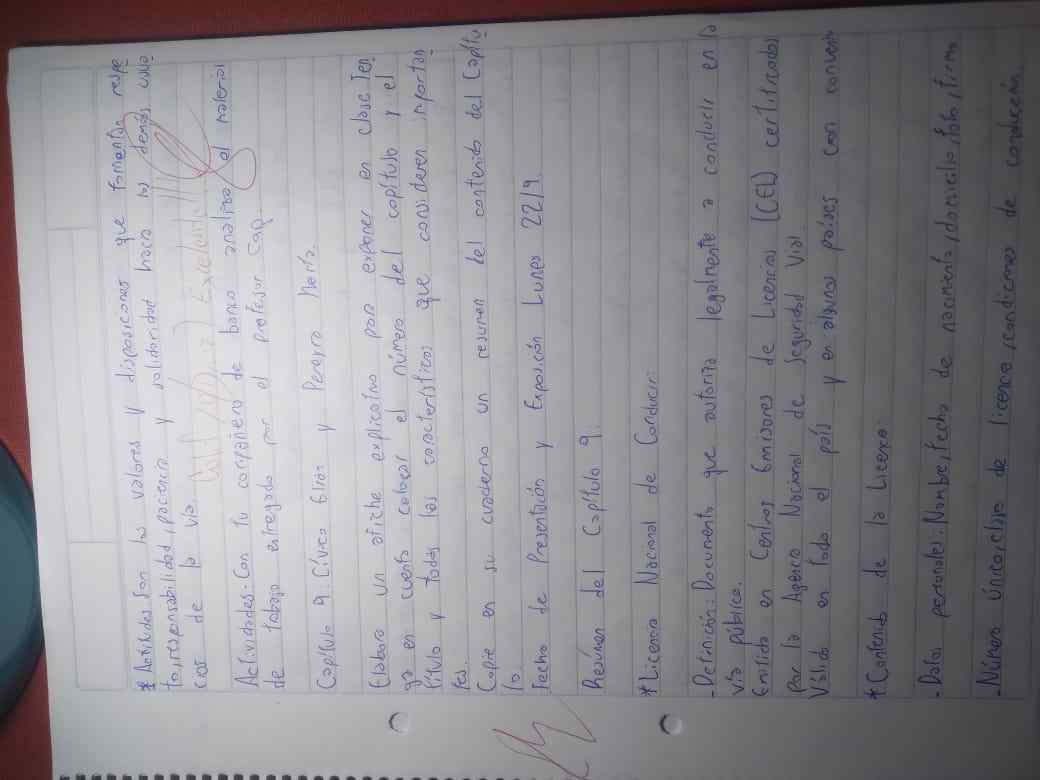 * Actitudes son los valores y disposiciones que fomentan respe
to, responsabilidad, paciencia y solidaridad hacia los demás usua
rios de la vía.
Excelente!!!
Actividades: Con tu compañero de banco analiza el material
de trabajo entregado por el profesor Cap
Capítulo 9 Cívico Elías y Pereyra María.
Elabora un afiche explicativo para exponer en clase Ten
ga en cuenta colocar el número del capítulo y el
título y todas las características que consideren importan
tes.
Copie en su cuaderno un resumen del contenido del Capítu
lo.
Fecha de Presentación y Exposición Lunes 22/9.
Resúmen del Capítulo 9:
* Licencia Nacional de Conducir:
- Definición: Documento que autoriza legalmente a conducir en la
vía pública.
Emitida en Centros Emisores de Licencias (CEL) certificados
por la Agencia Nacional de Seguridad Vial.
Válido en todo el país y en algunos países con convenio
* Contenido de la Licencia:
- Datos personales: Nombre, fecha de nacimiento, domicilio, foto, firma
- Número único, clase de licencia, condiciones de conducción.